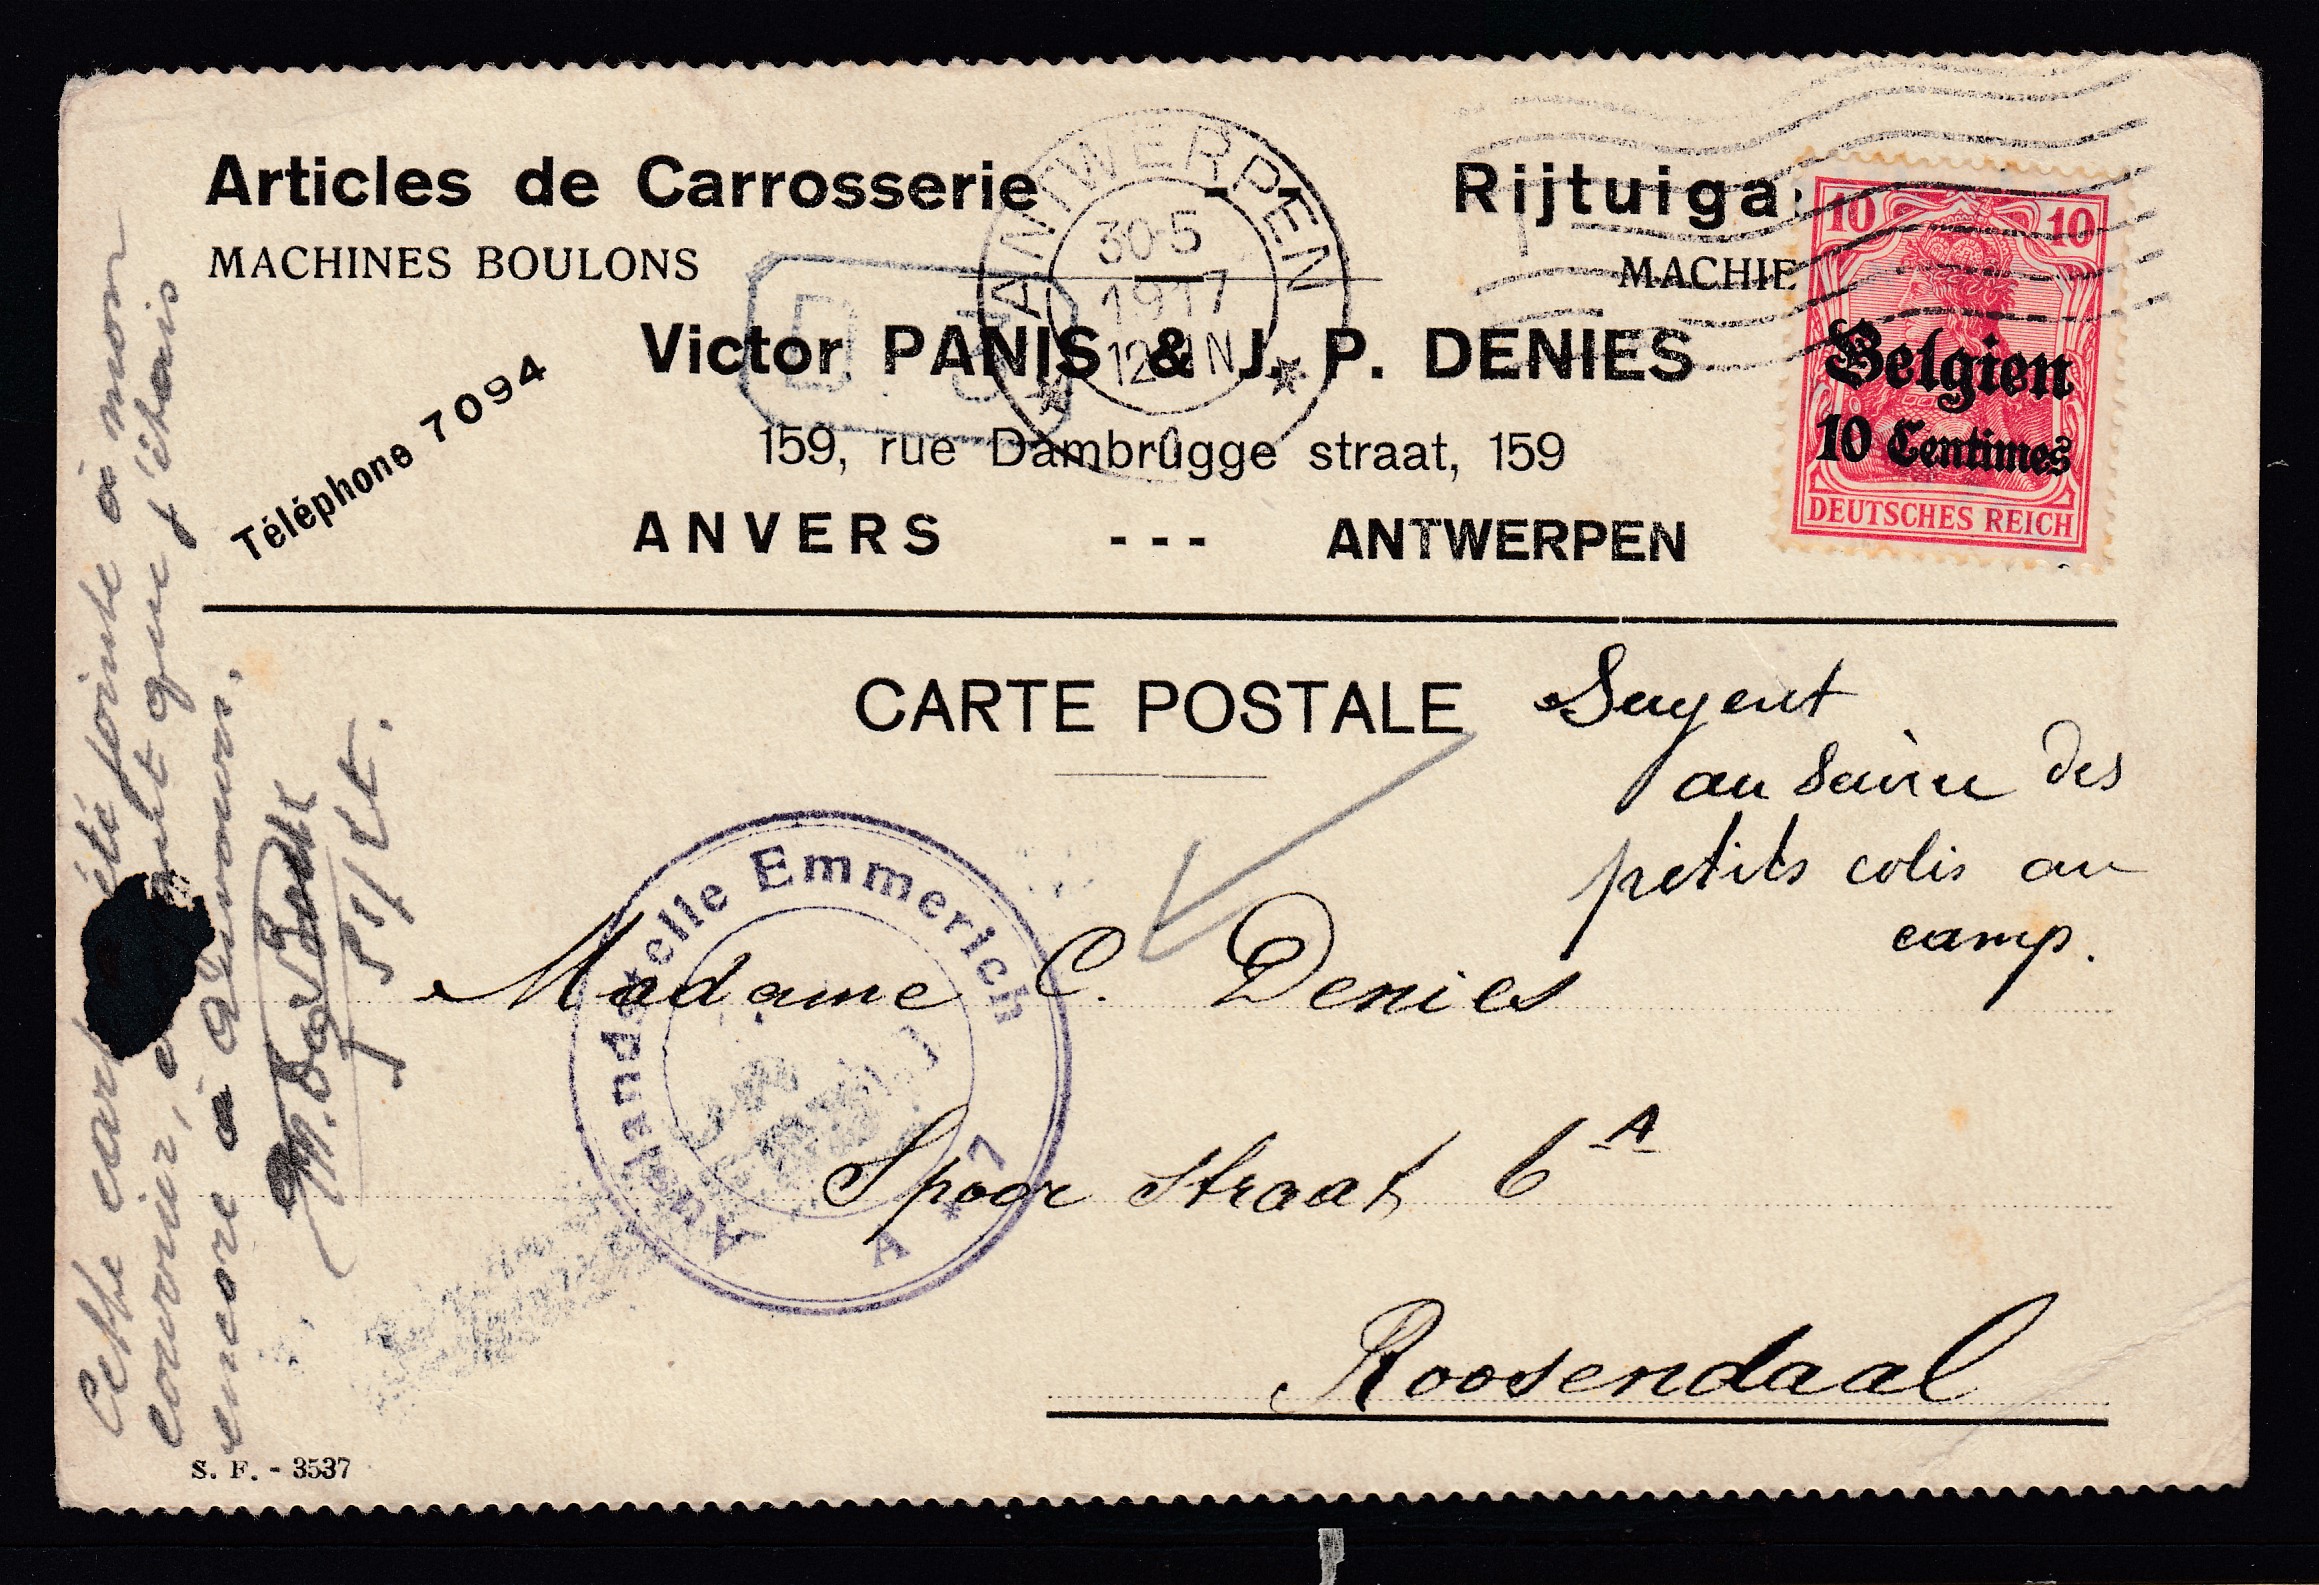 Articles de Carrosserie
Rijtuiga
MACHINES BOULONS
MACHIE
Victor PANIS & J. P. DENIES
Téléphone 7094
159, rue Dambrugge straat, 159
ANVERS --- ANTWERPEN
ANTWERPEN
30·5
1917
12- N
10 10
Belgien
10 Centimes
DEUTSCHES REICH
CARTE POSTALE
Sergent
au Service des
petits colis au
camp.
Madame C. Denies
Spoor straat 6 A
Roosendaal
Auslandstelle Emmerich
A
Cette carte été jointe à mon
courrier, que j'étais
encore à
S. F. - 3537